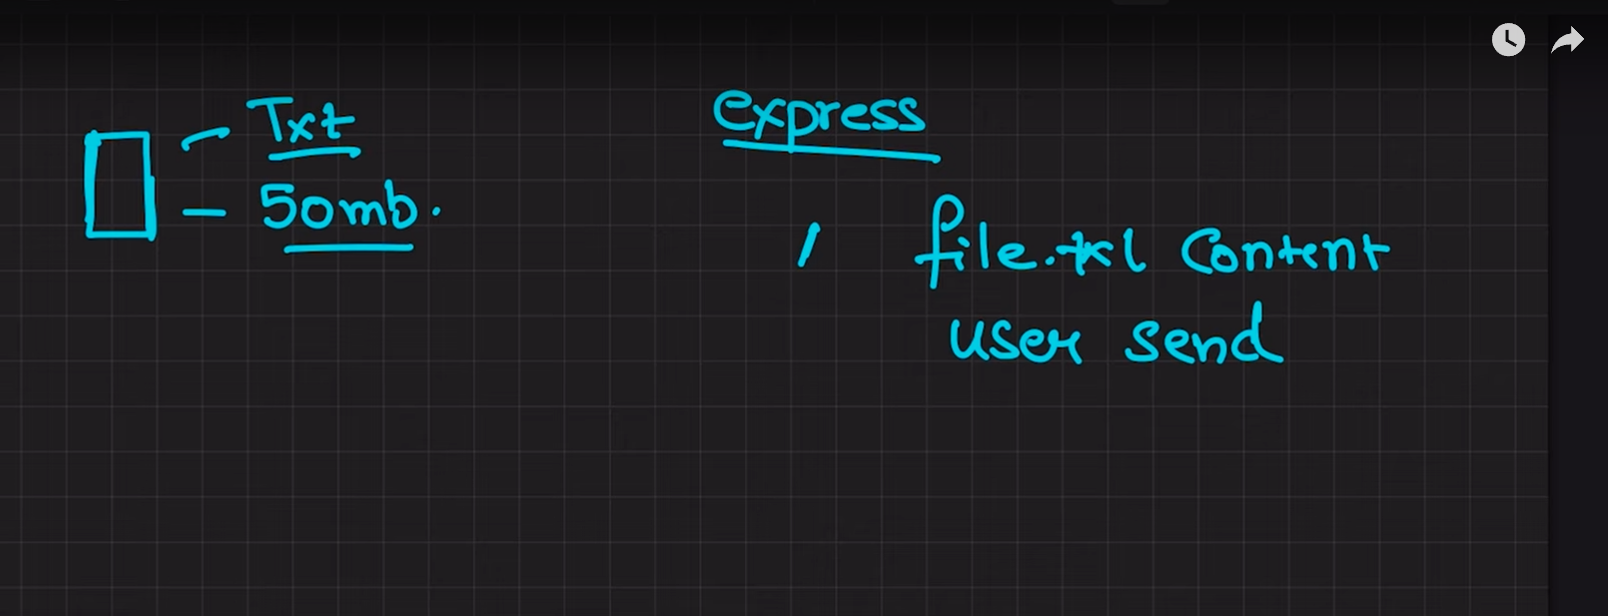 Txt
50mb.
express
/ file.txt Content
user send